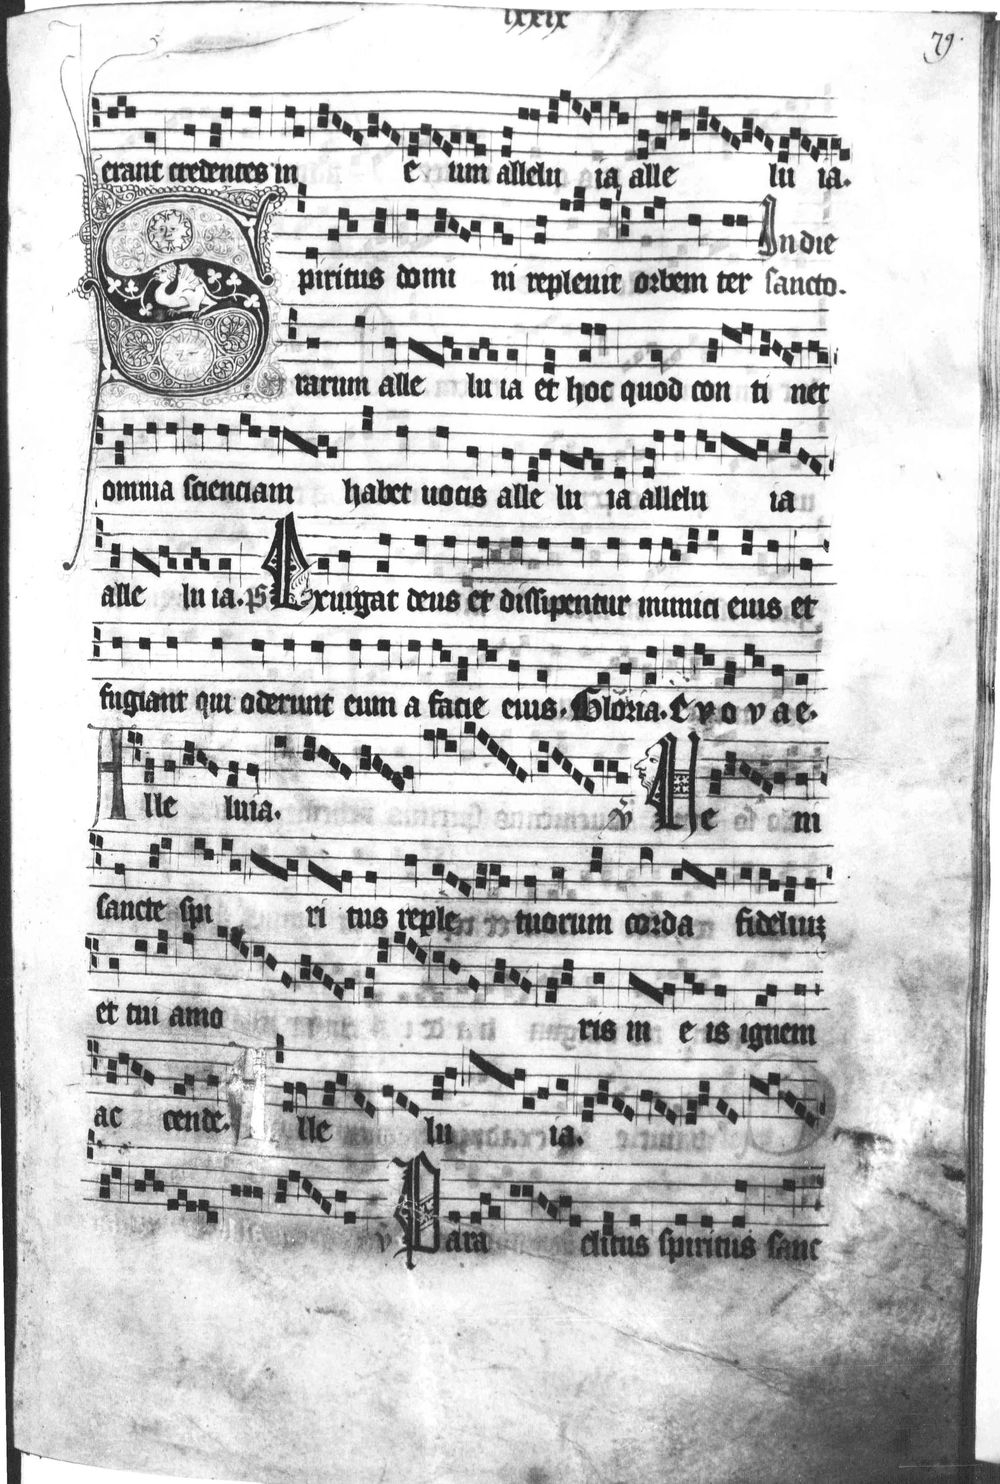 lxxix
79.
erant credentes in e um allelu ia, alle lu ia.
In die
Spiritus domi ni repleuit orbem ter sancto.
rarum alle lu ia et hoc quod con ti net
omnia scienciam habet uocis alle lu ia allelu ia
alle lu ia. ps Exurgat deus et dissipentur inimici eius et
fugiant qui oderunt eum a facie eius. Gloria. E v o v a e.
Alle luia. ℣ Ve ni
sancte spi ri tus reple tuorum corda fideliuʒ
et tui amo ris in e is ignem
ac cende. Alle lu ia.
℣ Para clitus spiritus sanc